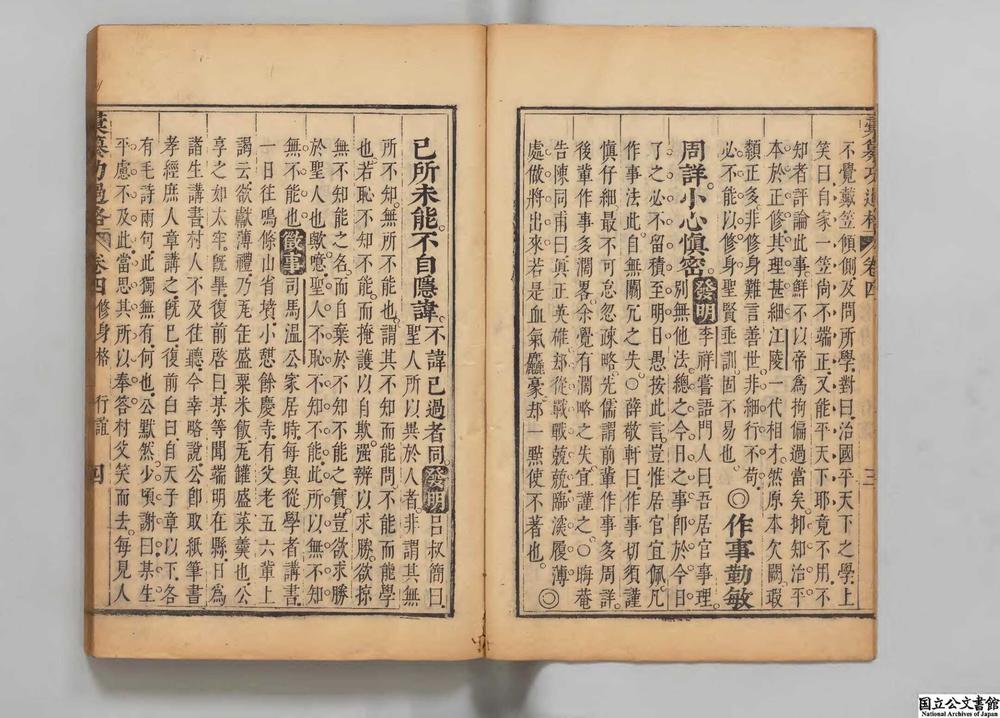 彙纂功過格 卷四 三
不覺戴笠傾側及問所學對曰治國平天下之學上
笑曰自家一笠尙不端正又能平天下耶竟不用不
知者評論此事鮮不以帝爲拘偏過當矣抑知治平
本於正修其理甚細江陵一代相才然原本欠闕瑕
纇正多非修身難言善世非細行不茍
必不能以修身聖賢垂訓固不易也 ◎作事勤敏
周詳小心愼密 發明 李祥嘗語門人曰吾居官事理
別無他法總之今日之事卽於今日
了之必不留積至明日愚按此言豈惟居官宜佩凡
作事法此自無關冗之失○薛敬軒曰作事切須謹
愼仔細最不可怠忽疎略先儒謂前輩作事多周詳
後輩作事多濶畧余覺有濶略之失宜謹之○晦菴
告陳同甫曰眞正英雄却從戰戰兢兢臨深履薄
處做將出來若是血氣麤豪却一點使不著也 ◎
己所未能不自隱諱 不諱己過者同 發明 呂叔簡曰
聖人所以異於人者非謂其無
所不知無所不能也謂其不知而能問不能而能學
也若恥不知不能而掩護以自欺强辨以求勝欲掠
無不知能之名而自棄於不知不能之實豈欲求勝
於聖人也歟噫聖人不恥不知不能此所以無不知
無不能也 徵事 司馬溫公家居時每與從學者講書
一日往鳴條山省墳小憩餘慶寺有父老五六輩上
謁云欲獻薄禮乃㼚缶盛粟米飯㼚罐盛菜羹也公
享之如太牢旣畢復前啓曰某等聞端明在縣日爲
諸生講書村人不及往聽今幸略說公卽取紙筆書
孝經庶人章講之旣已復前白曰自天子章以下各
有毛詩兩句此獨無有何也公默然少頃謝曰某生
平慮不及此當思其所以奉答村父笑而去每見人
彙纂功過格 卷四 修身格 行誼 四
国立公文書館
National Archives of Japan